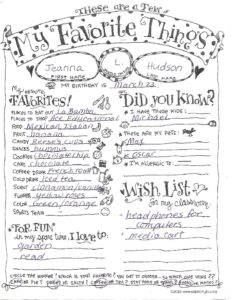 These are a Few
My Favorite Things
Jeanna L. Hudson
FIRST NAME LAST NAME
MY BIRTHDAY IS March 23
My Personal
FAVORITES!
PLACES TO EAT OUT La Bamba
PLACES TO SHOP Ace Educational
FOOD Mexican, Italian
FRUIT banana
CANDY Reese's cups
SNACKS hummus
COOKIES chocolate chip
CAKE chocolate
COFFEE DRINK French roast
COLD DRINK iced tea
SCENT cinnamon/vanilla
FLOWER yellow roses
COLOR green/orange
SPORTS TEAM
Did you know?
I HAVE THESE KIDS:
Michael
THESE ARE MY PETS:
Max
Oscar
I'm Allergic to
Wish List
for my classroom
headphones for
computers
media cart
For FUN
in my spare time, I love to:
garden
read